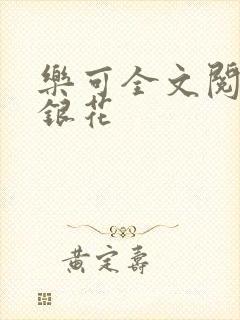 樂可全文閱
銀花
黃定壽